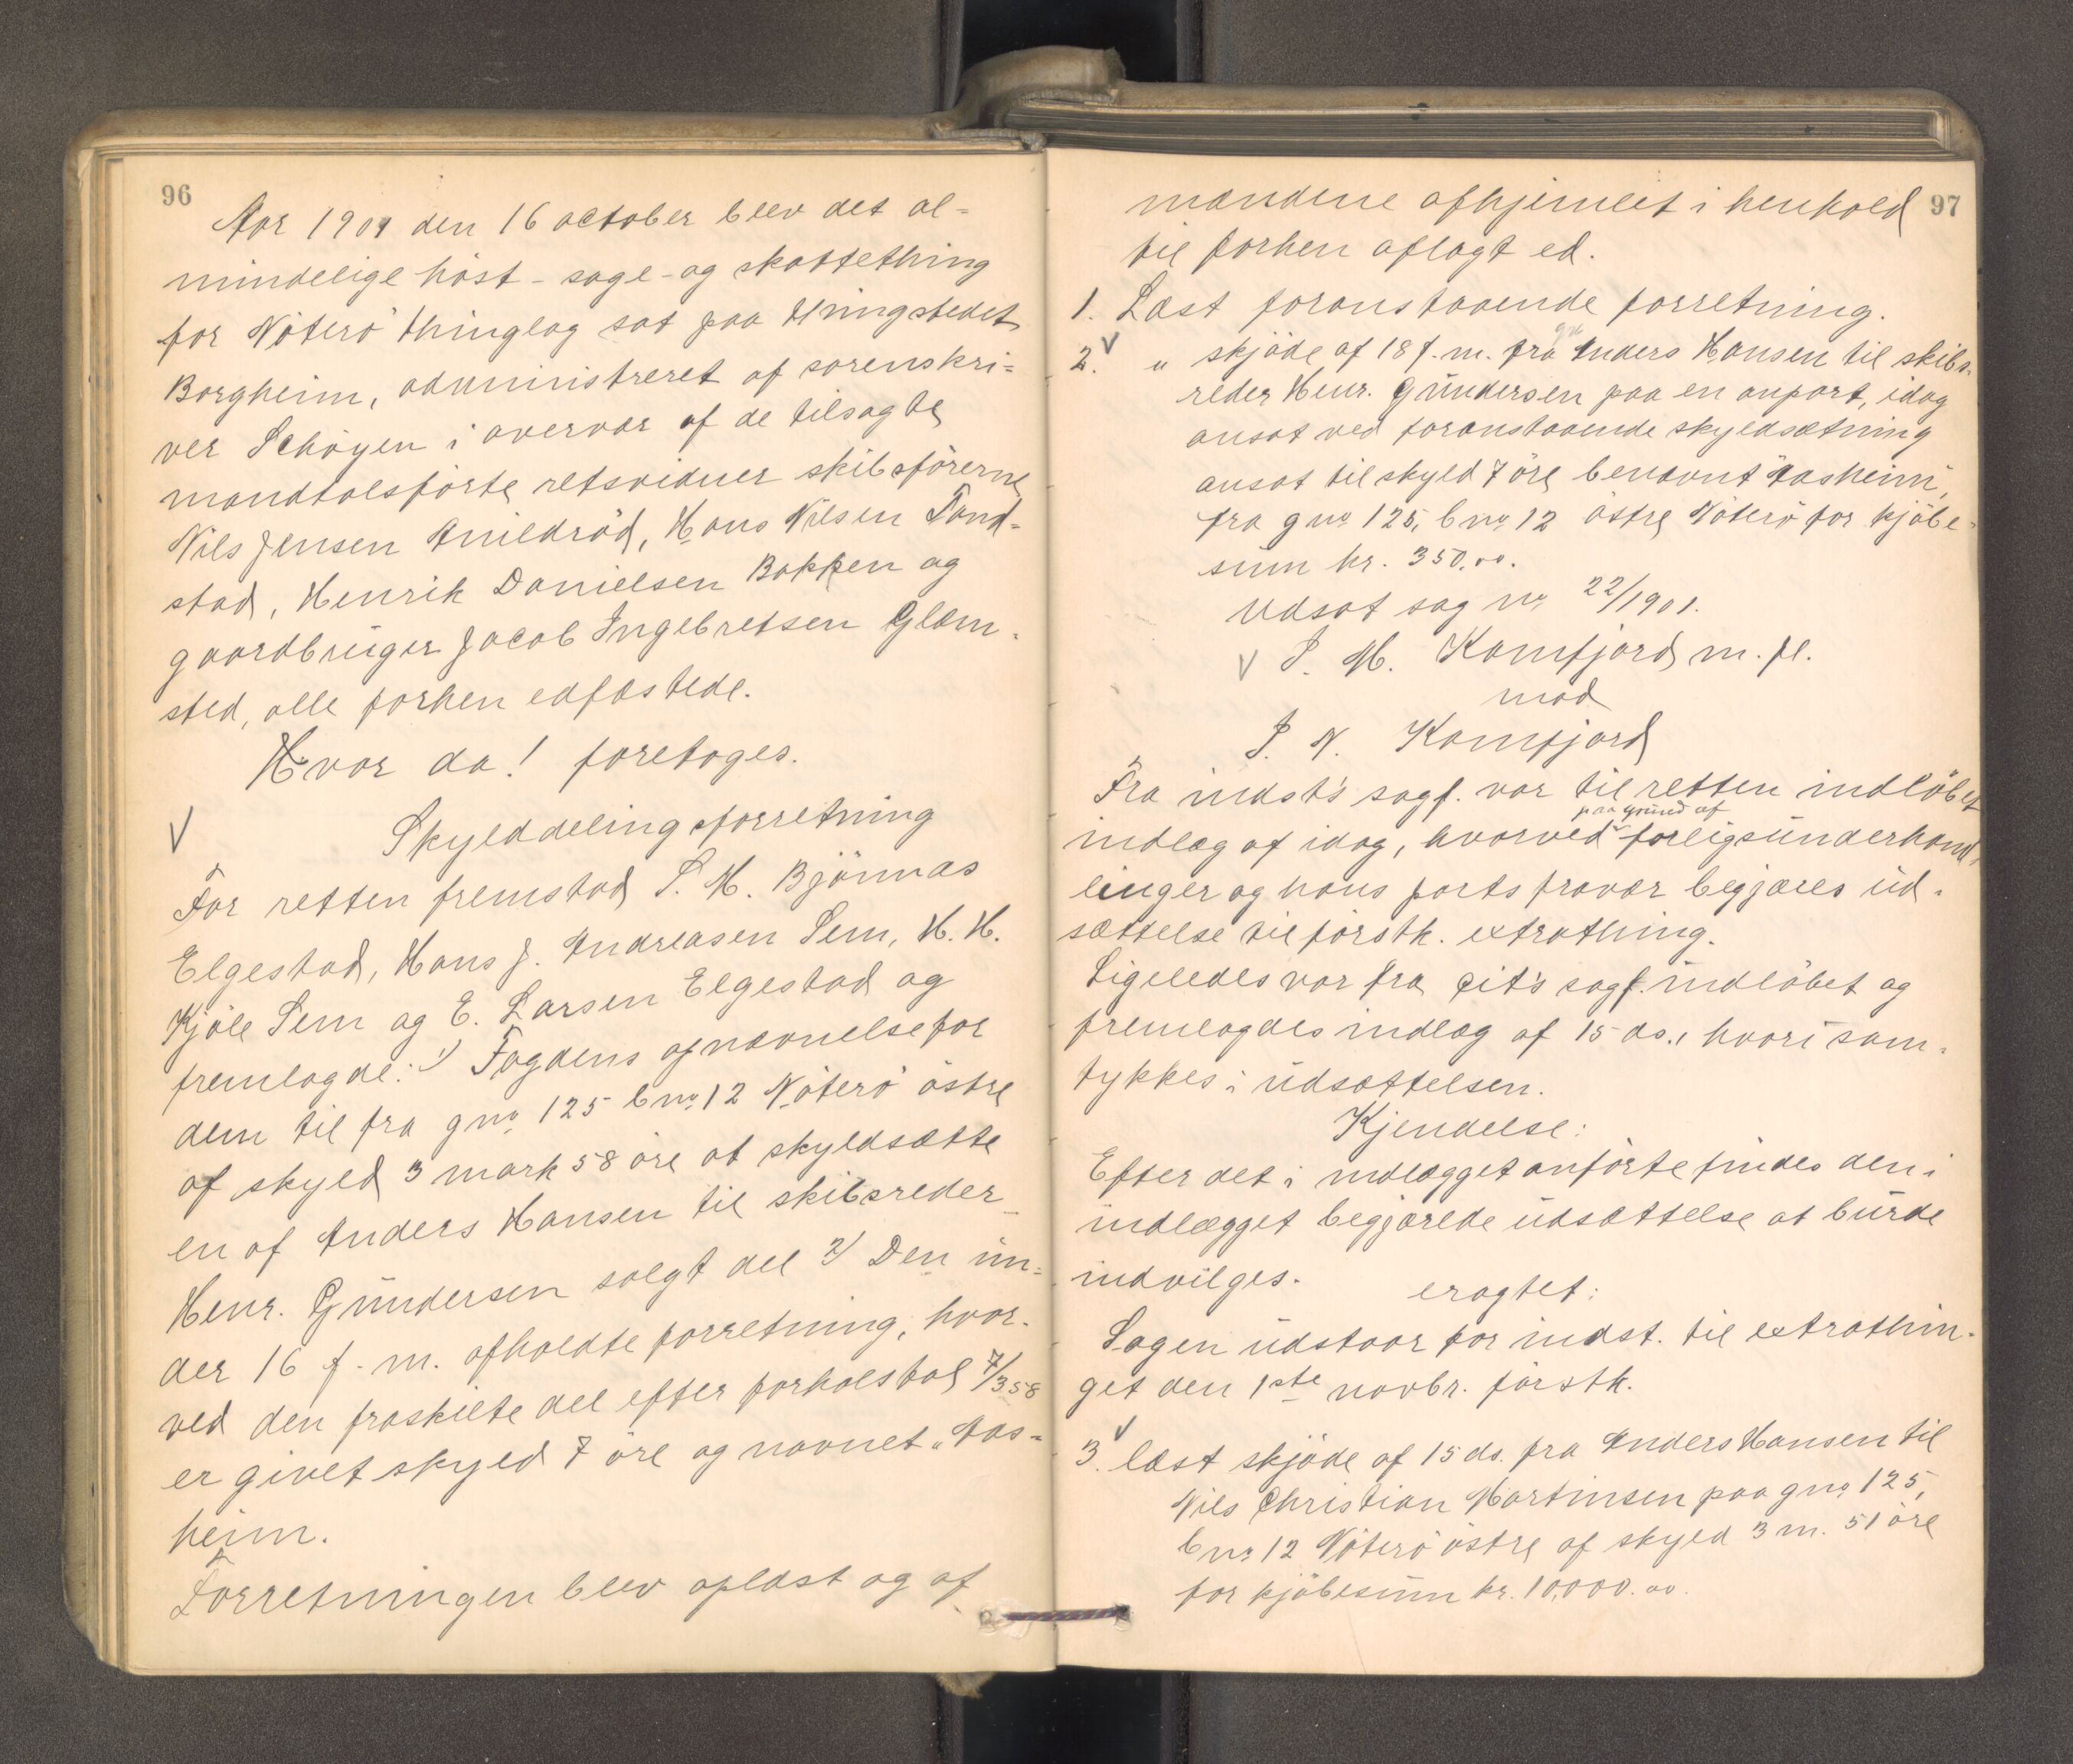 96
Aar 1901 den 16 october blev det al=
mindelige höst-sage-og skattething
for Nöterö thinglag sat paa thingstedet
Borgheim, administreret af sorenskri=
ver Schöyen i overvær af de tilsagte
mandtalsförte retsvidner skibsförerne
Nils Jensen Knildröd, Hans Nilsen Tand=
stad, Henrik Danielsen Bakken og
gaardbruger Jacob Ingebretsen Glom-
sted, alle forhen edfæstede.
Hvor da! foretoges.
V Skylddelingsforretning
For retten fremstod S. M. Bjönnæs
Elgestad, Hans J. Andreasen Sem, H. H.
Kjöle Sem og E. Larsen Elgestad og
fremlagde: 1) Fogdens opnævnelse for
dem til fra gno 125 bno 12 Nöterö östre
af skyld 3 mark 58 öre at skyldsætte
en af Anders Hansen til skibsreder
Henr. Gundersen solgt del 2) Den un=
der 16 f. m. afholdte forretning, hvor-
ved den fraskilte del efter forholstal 7/358
er givet skyld 7 öre og navnet „Aas=
heim.
Forretningen blev oplæst og af
97
mændene afhjemlet i henhold
til forhen aflagt ed.
1. Læst foranstaaende forretning.
2. V " skjöde af 18 f. m. fra Anders Hansen til skibs-
reder Henr. Gundersen paa en anpart, idag
ansat ved foranstaaende skyldsætning
ansat til skyld 7 öre benævnt "Aasheim",
fra gno 125, bno 12 östre Nöterö for kjöbe=
sum kr. 350.00.
Udsat sag no 22/1901.
V S. M. Kamfjord m. fl.
mod
S. N. Kamfjord
Fra indst's sagf. var til retten indlöbet
indlæg af idag, hvorved paa grund af forligsunderhand=
linger og hans parts fravær begjæres ud-
sættelse til förstk. extrathing.
Ligeledes var fra cit's sagf. indlöbet og
fremlagdes indlæg af 15 ds., hvori sam-
tykkes i udsættelsen.
Kjendelse:
Efter det i indlægget anförte findes den i
indlægget begjærede udsættelse at burde
indvilges.
eragtet:
Sagen udstaar for indst. til extrathin-
get den 1ste novbr. förstk.
3. V læst skjöde af 15 ds. fra Anders Hansen til
Nils Christian Martinsen paa gno 125,
bno 12 Nöterö östre af skyld 3 m. 51 öre
for kjöbesum kr. 10,000.00.